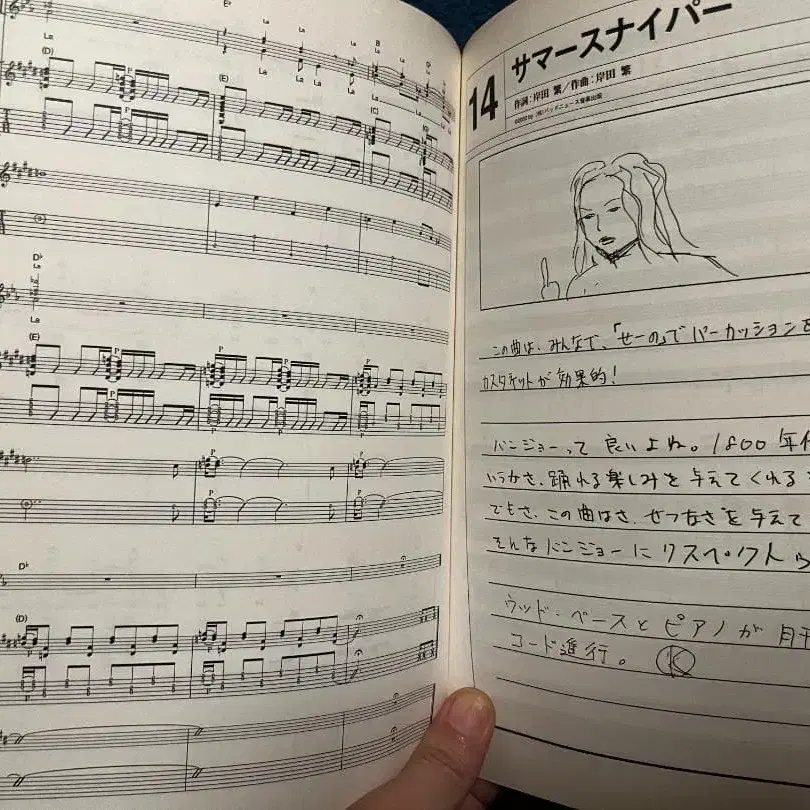 La
La
La
La
La
La
B
La
D♭
La
(D)
P
P
(E)
(C)
La
D♭
La
La
(E)
P
P
P
P
P
P
P
P
P
P
D♭
(D)
14
サマースナイパー
作詞:岸田 繁/作曲:岸田 繁
この曲は、みんなで、「せーの」でパーカッションを
カスタネットが効果的!
バンジョーって良いよね。1800年代
いうかさ、踊れる楽しみを与えてくれる
でもさ、この曲はさ、せつなさを与えて
そんなバンジョーにリスペクト
ウッド・ベースとピアノが
コード進行。 K